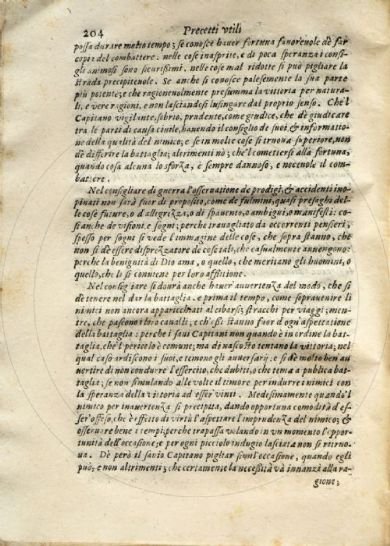 204 Precetti vtili
possa durare molto tempo; se conosce hauer fortuna fauoreuole dè far
copia del combattere. nelle cose inasprite, e di poca speranza i consi-
gli animosi sono sicurissimi. nelle cose mal ridotte si può pigliare la
strada precipitenole. Se anche si conosce palesemente la sua parte
più potente; e che ragioneuolmente presumma la vittoria per natura-
li, e vere ragioni, e non lasciandosi lusingare dal proprio senso. Che'l
Capitano vigilante, sobrio, prudente, come giudice, che dè giudicare
tra le parti di causa ciuile, hauendo il consiglio de suoi, & informatio-
ne della qualità del nimico; e se in molte cose si troua superiore, non
dè differire la battaglia; altrimenti nò; che'l cometterse alla fortuna,
quando cosa alcuna lo sforza, è sempre dannoso, e nocenole il com-
battere.
Nel consigliare di guerra l'osseruatione de prodigi, & accidenti ino-
pinati non sarà fuor di proposito, come de fulmini, quasi presaghi del-
le cose future, o d'allegrezza, o di spauento, o ambigui, o manifesti: co-
si anche de visioni, e sogni; perche trauagliato da occorrenti pensieri,
spesso per sogni se vede l'immagine delle cose, che sopra stanno, che
non si dè essere disprezzatore de cose tali, che casualmente auuengono:
perche la benignità di Dio ama, o quello, che meritano gli huomini, o
quello, che li si conuiene per loro afflitione.
Nel consigiare si dourà anche hauer auuertenza del modo, che si
dè tenere nel dar la battaglia. e prima il tempo, come soprauenire li
nimici non ancora apparicchiati al cibarsi; stracchi per viaggi; men-
tre, che pascono i lro caualli; e ch'essi stanno fuor d'ogni aspettatione
della battaglia: perche i saui Capitani non quando è in ordine la bat-
taglia, che'l pericolo è comune; ma di nascosto tentano la vittoria; nel
qual caso ardiscono i suoi, e temono gli auuersarij: e si dè molto ben au
uertire di non condurre l'essercito, che dubita, o che tema a publica bat-
taglia; se non simulando alle volte il timore per indurre i nimici con
la speranza della vittoria ad esser vinti. Modesimamente quando'l
nimico per inauertenza si precipita, dando opportuna comodità d'es-
ser'offeso; che è effetto di virtù l'aspettare l'imprudenza del nimico; &
osseruare bene i tempi; perche trapassa volando in vn momento l'oppor-
tunità dell'occasione; e per ogni picciolo indugio lasciata non si ritroua
ua. Dè però il sauio Capitano pigliar simil'occasione, quando egli
può; e non altrimenti; che certamente la necessità và innanzi alla ra-
gione;